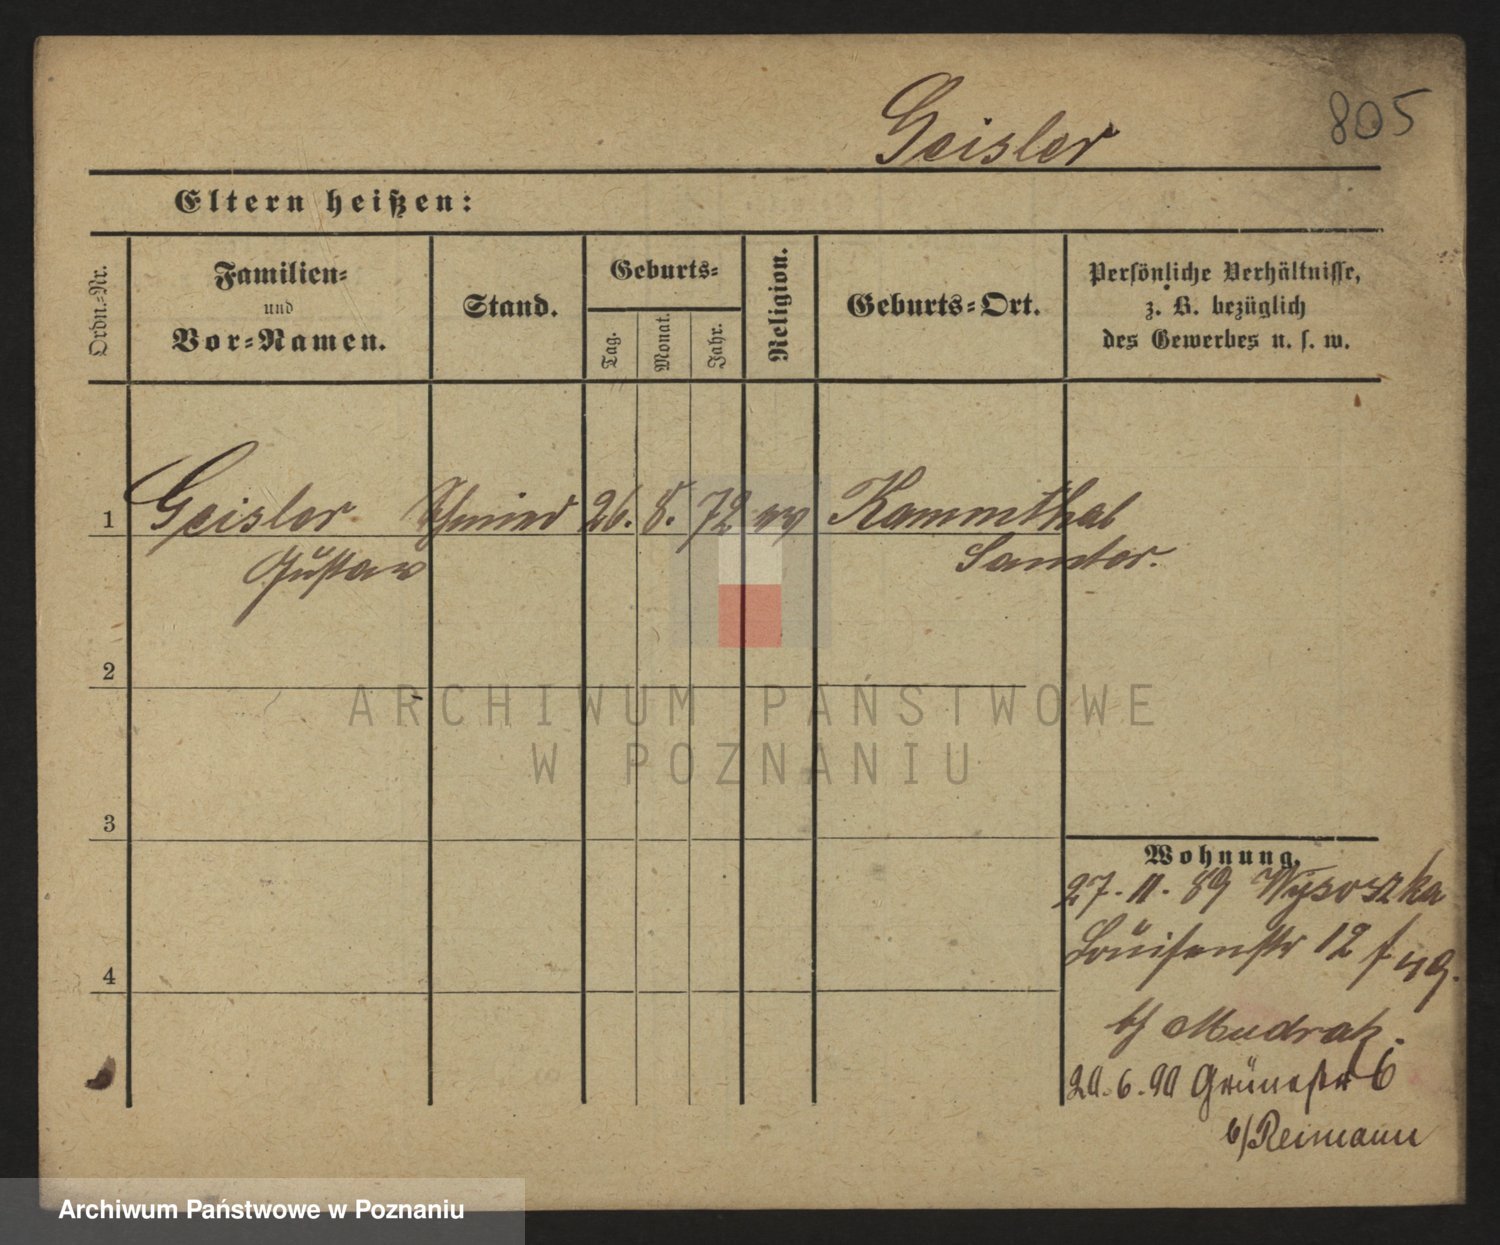 Geisler
805
Eltern heißen:
Ordn.-Nr.
Familien-
und
Vor-Namen.
Stand.
Geburts-
Tag.
Monat.
Jahr.
Religion.
Geburts-Ort.
Persönliche Verhältnisse,
z. B. bezüglich
des Gewerbes u. s. w.
1 Geisler Schmied 26. 8. 72 ev Kammthal
Gustav Samter.
2
ARCHIWUM PAŃSTWOWE
W POZNANIU
3
Wohnung.
27. 11. 89 Wysoszka
Louisenstr 12
4
b/ Mudrak.
20. 6. 90 Grünestr 6
b/ Reimann
Archiwum Państwowe w Poznaniu